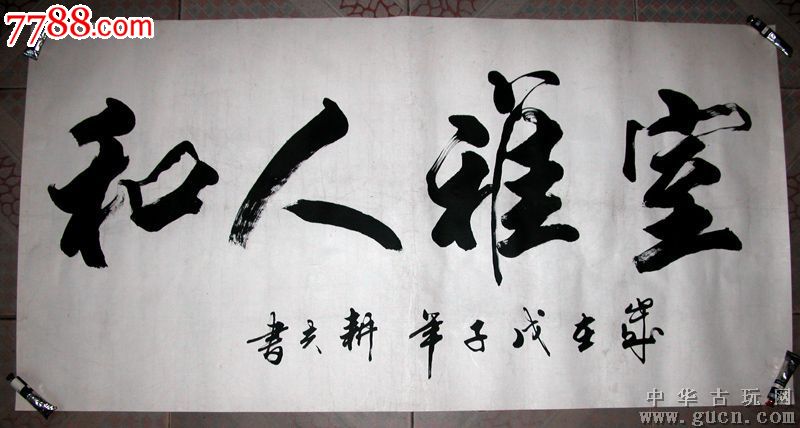 7788.com
室雅人和
歲在戊子年 耕夫書
中华古玩网
www.gucn.com